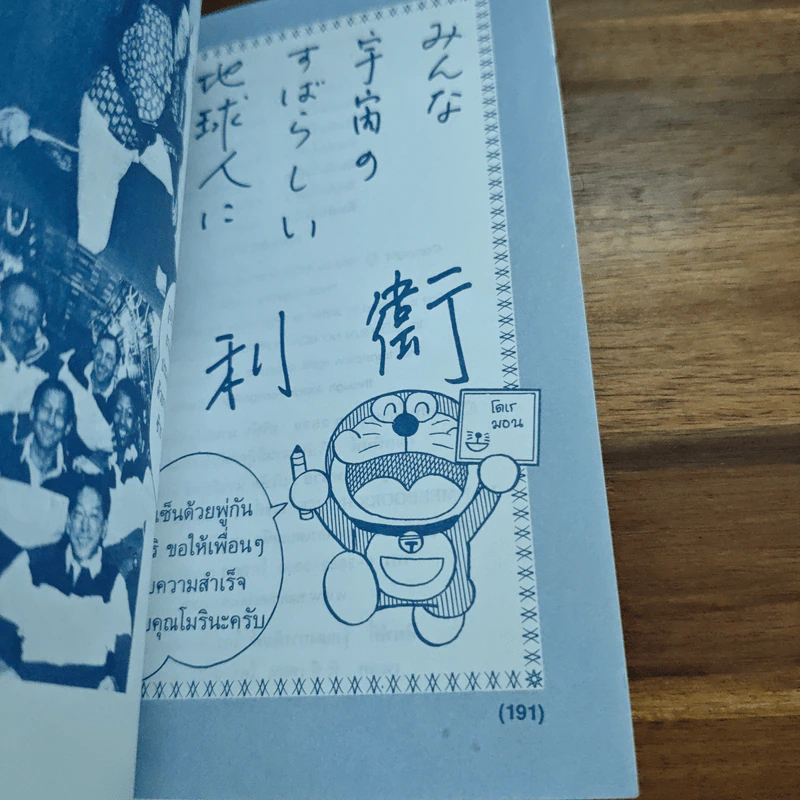 みんな
宇宙の
すばらしい
地球人に
利 衛
โดเร
มอน
เซ็นด้วยพู่กัน
ริ ขอให้เพื่อนๆ
ความสำเร็จ
คุณโมรินะครับ
(191)